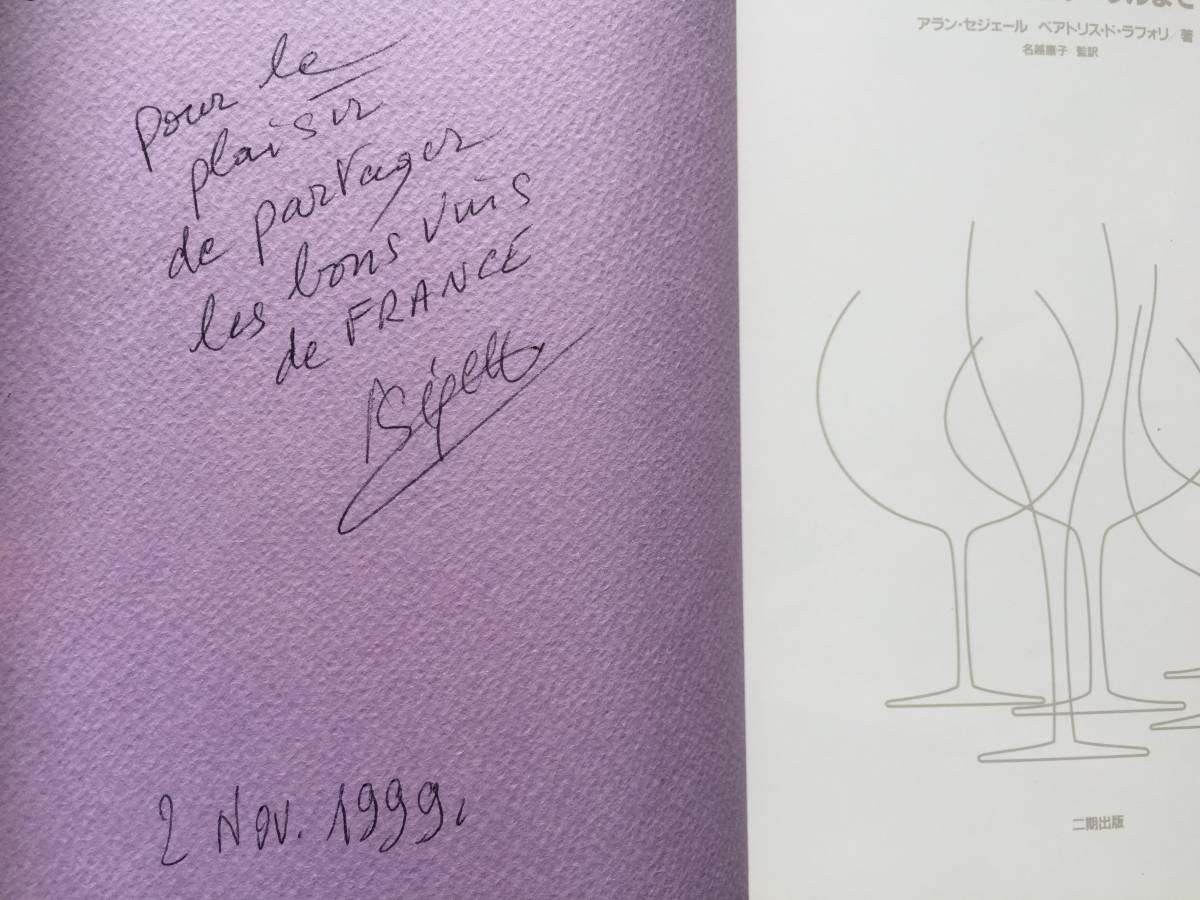 Pour le
plaisir
de partager
les bons vins
de FRANCE
2 Nov. 1999.
アラン・セジェール ベアトリス・ド・ラフォリ 著
名越康子 監訳
二期出版